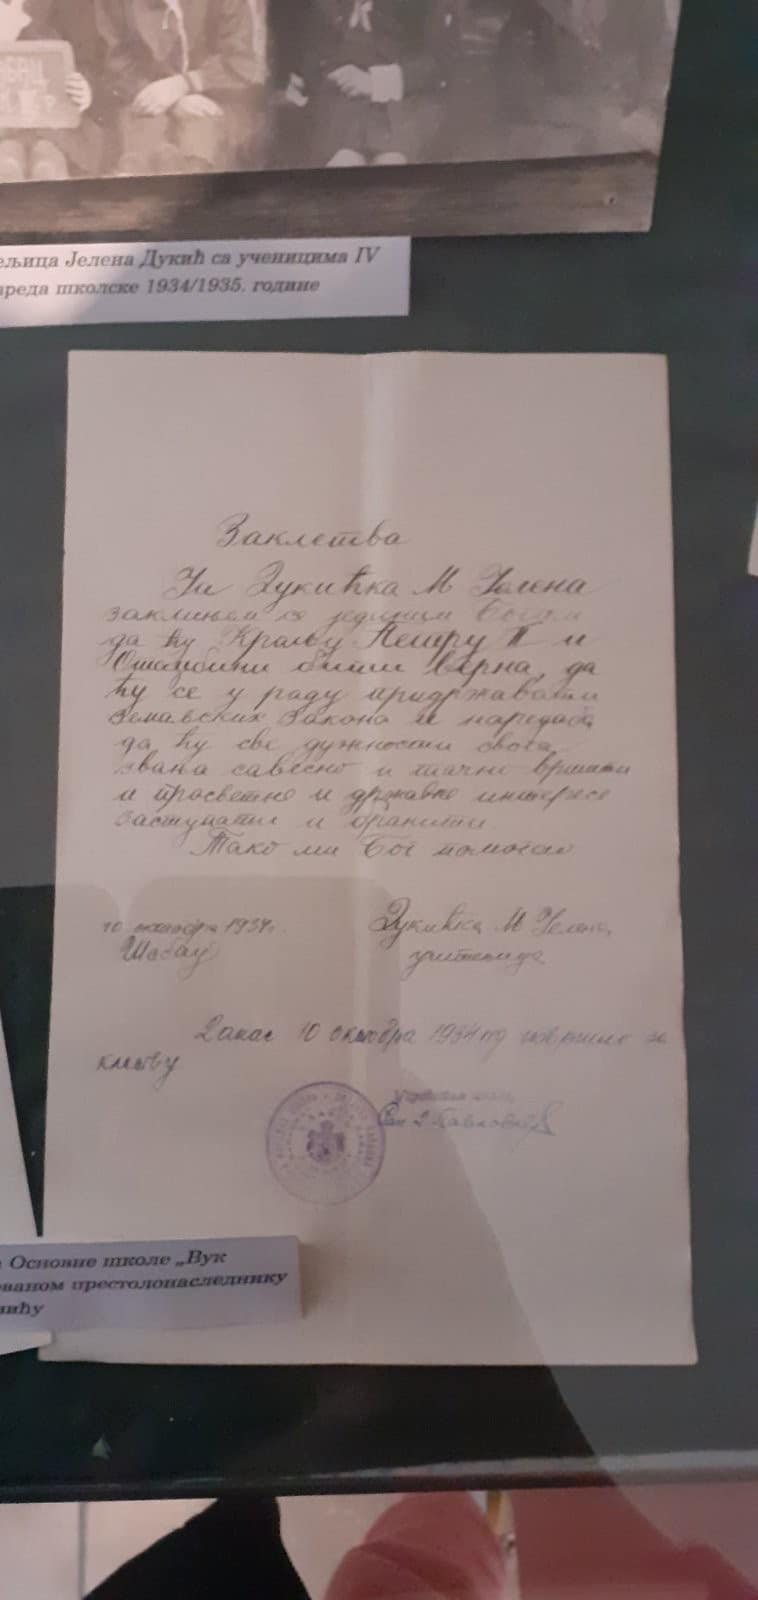 ељица Јелена Дукић са ученицима IV
ареда школске 1934/1935. године
Заклетва
Ја Дукићка М Јелена
заклињем се јединим Богом
да ћу Краљу Петру II и
Отаџбини бити верна, да
ћу се у раду придржавати
Земавских Закона и наредаба
да ћу све дужности свога
звана савесно и тачно вршити
и просветне и државне интересе
заступати и бранити
Тако ми Бог помогао
10 октобра 1934г.
Шабац
Дукићка М Јелена,
учитељица
Данас 10 октобра 1934 год извршио за
клетву
Основне школе „Вук
ованом престолонаследнику
вићу